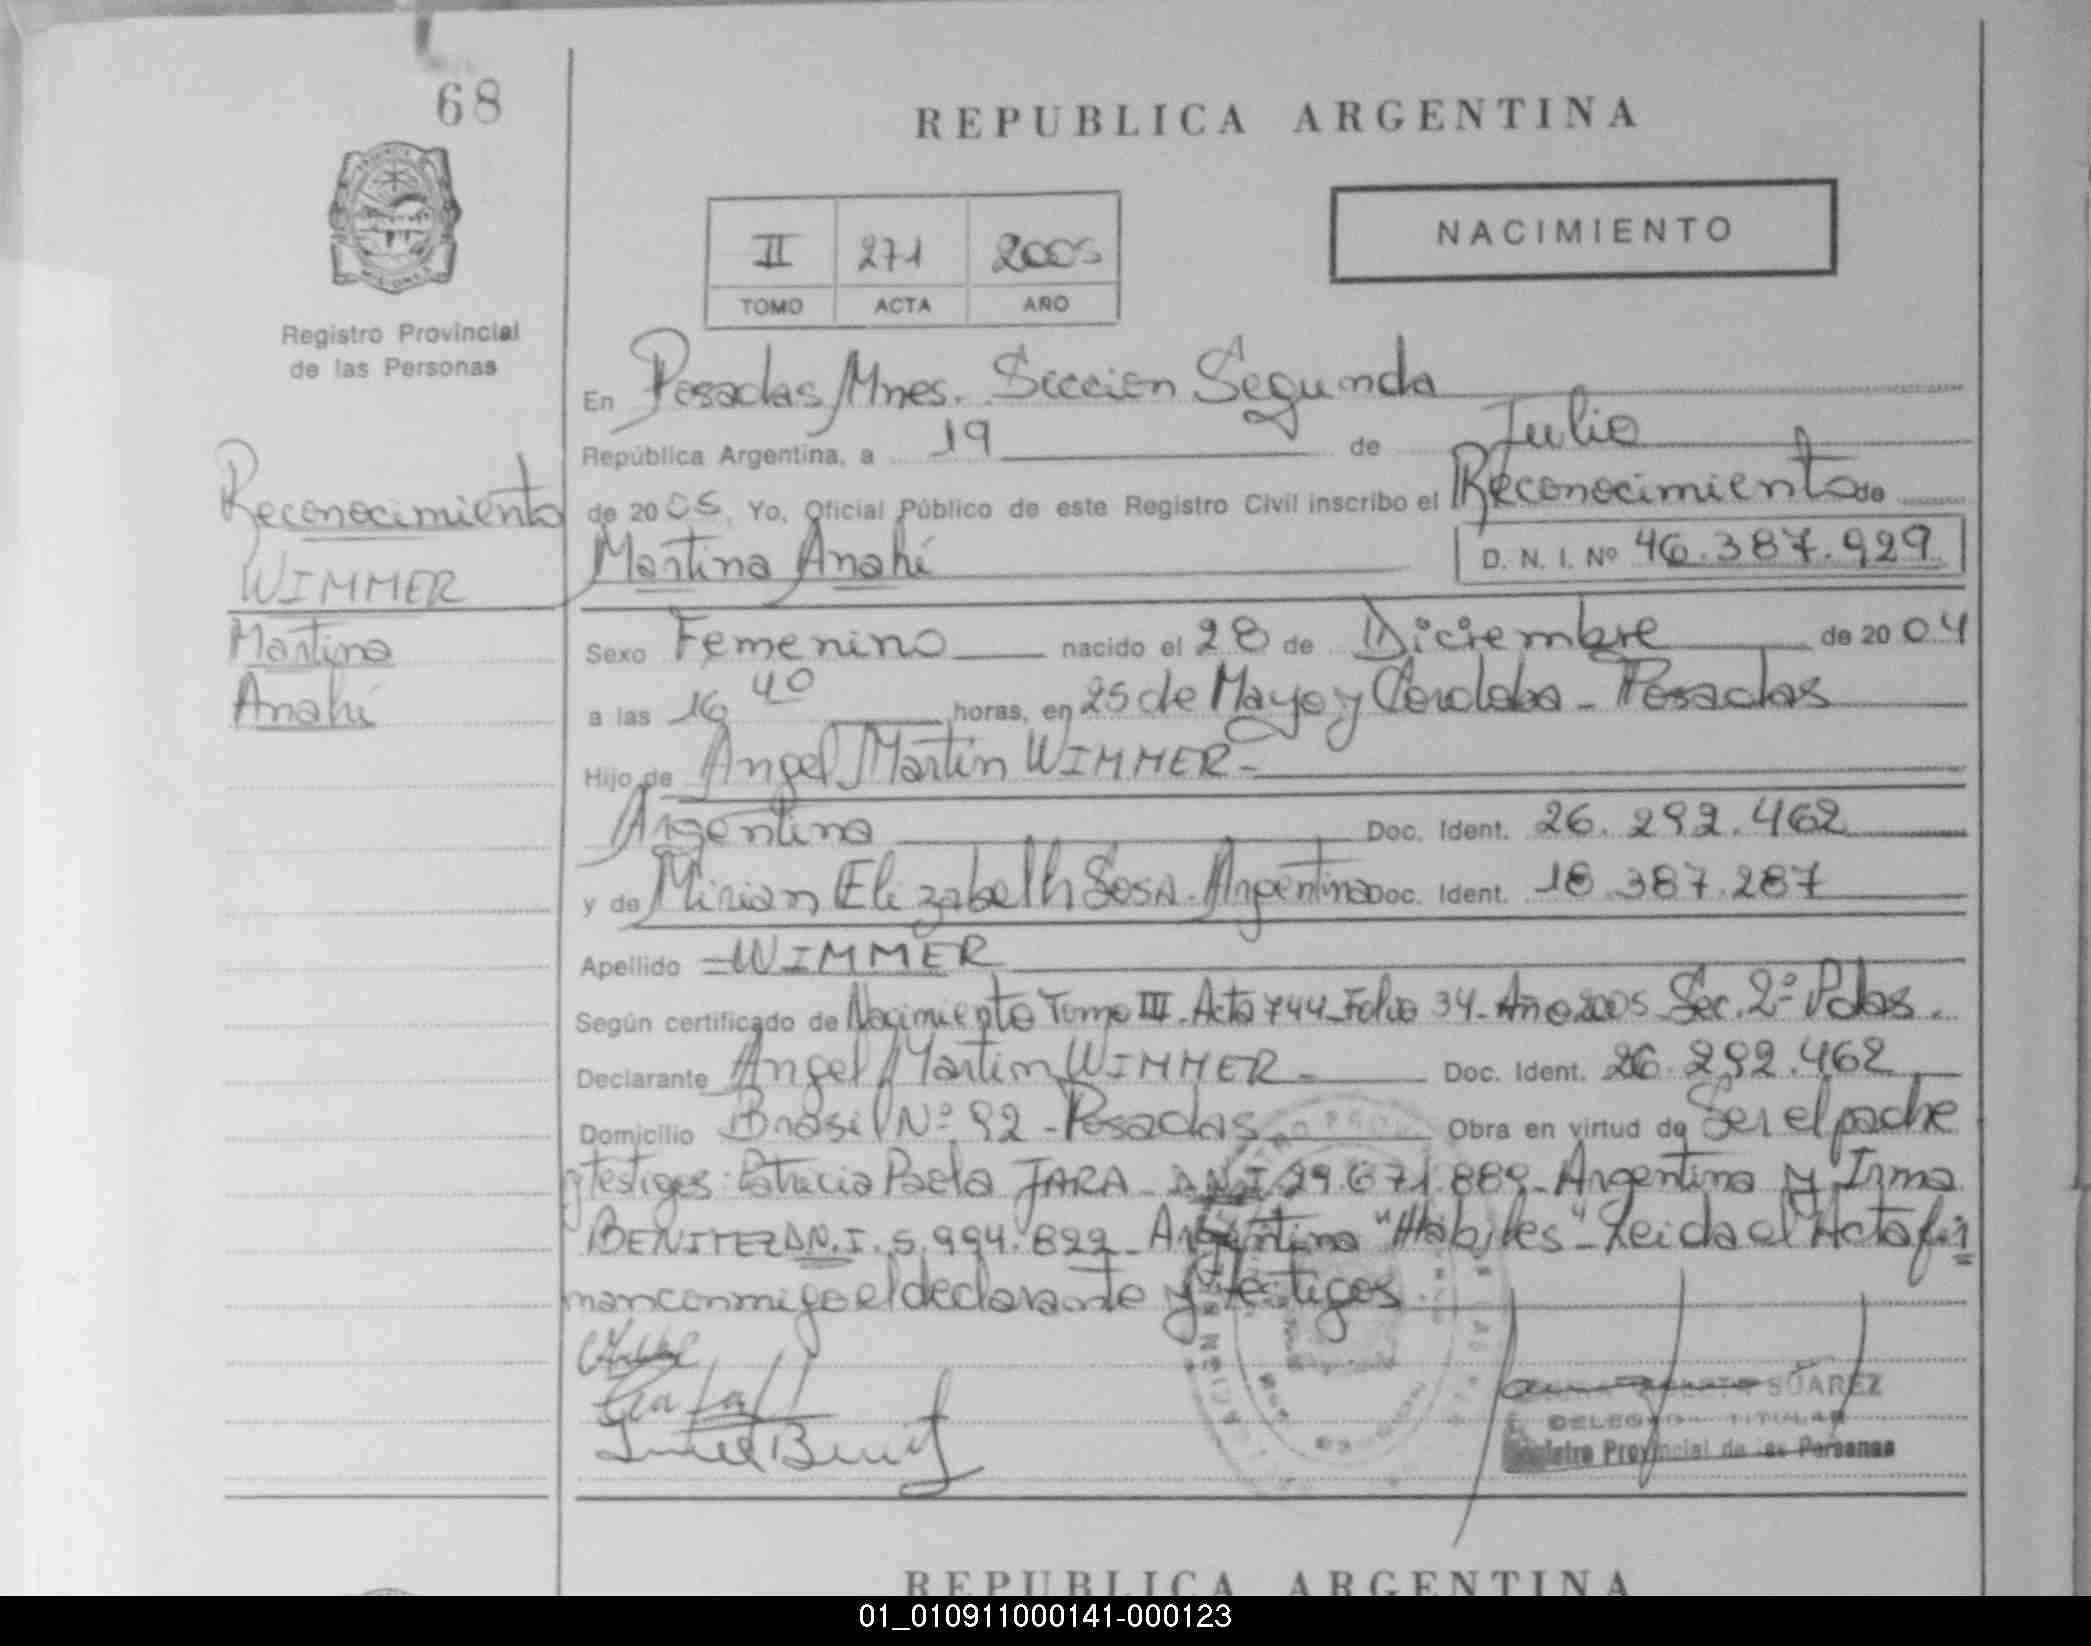 68
REPUBLICA ARGENTINA
II 271 2005
TOMO ACTA AÑO
NACIMIENTO
Registro Provincial
de las Personas
En Posadas, Mnes. Sección Segunda
República Argentina, a 19 de Julio
de 2005. Yo, Oficial Público de este Registro Civil inscribo el Reconocimiento de
Martina Anahí D. N. I. Nº 46.387.929
Reconocimiento
WIMMER
Martina
Anahí
Sexo Femenino nacido el 28 de Diciembre de 2004
a las 16 40 horas, en 25 de Mayo y Cordoba - Posadas
Hijo de Angel Martin WIMMER -
Argentina Doc. Ident. 26.292.462
y de Mirian Elizabeth SOSA - Argentina Doc. Ident. 18.387.287
Apellido = WIMMER
Según certificado de Nacimiento Tomo III - Acta 744 - Folio 34 - Año 2005 - Sec. 2ª Pdas.
Declarante Angel Martin WIMMER - Doc. Ident. 26.292.462
Domicilio Brasil Nº 92 - Posadas Obra en virtud de Ser el padre
y testigos: Patricia Paola JARA - D.N.I. 29.671.889 - Argentina y Irma
BENITEZ D.N.I. 5.994.829 - Argentina "Hábiles" - Leida el Acta fir
man conmigo el declarante y testigos
SUAREZ
DELEGADO TITULAR
Registro Provincial de las Personas
REPUBLICA ARGENTINA
01_010911000141-000123